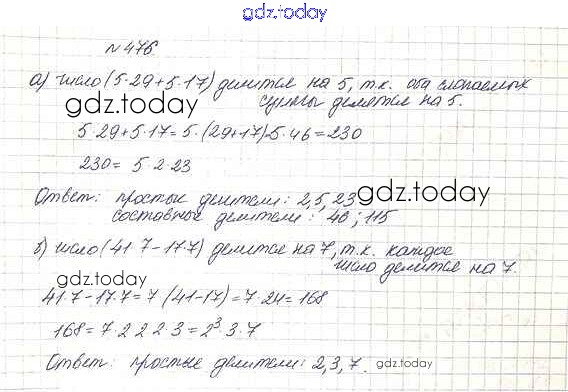 gdz.today
№ 476
а) число (5·29+5·17) делится на 5, т.к. оба слагаемых
суммы делятся на 5.
gdz.today
5·29+5·17=5·(29+17)5·46=230
230= 5·2·23
Ответ: простые делители: 2,5,23
gdz.today
составные делители: 46; 115
б) число (41·7-17·7) делится на 7, т.к. каждое
число делится на 7.
gdz.today
41·7-17·7=7(41-17)=7·24=168
168=7·2·2·2·3=2³·3·7
Ответ: простые делители: 2,3,7.
gdz.today